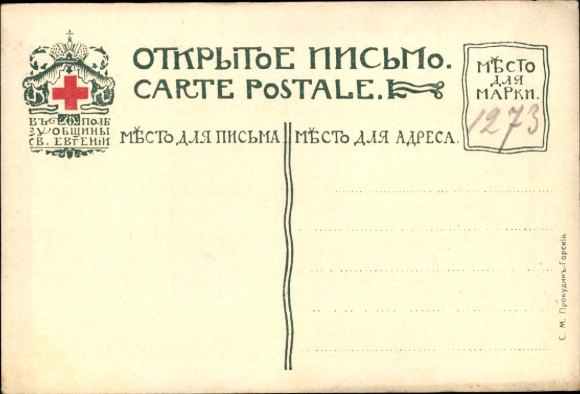 ОТКРЫТОЕ ПИСЬМО.
CARTE POSTALE.
МѢСТО
ДЛЯ
МАРКИ.
1273
ВЪ ПОЛЬ
ЗУ ОБЩИНЫ
СВ. ЕВГЕНІИ
МѢСТО ДЛЯ ПИСЬМА
МѢСТО ДЛЯ АДРЕСА.
С. М. Прокудинъ-Горскій.